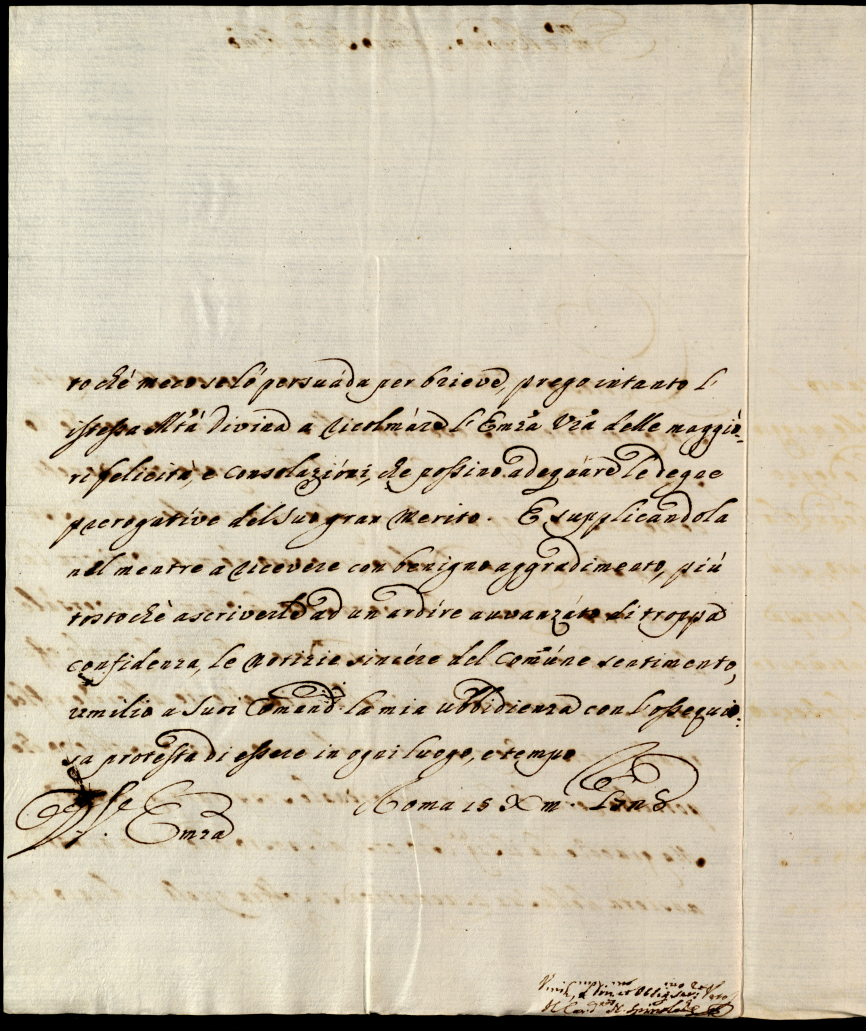 to chè meco se lò persuáda per brieve, prego intanto l'
istessa Mtà Divina a ricolmáre l'Emza Vra delle maggio-
ri felicità, e consolazióni, che possino adeguáre le degne
prerogatíve del suo gran merito. E supplicandola
nel mentre a ricevere con benigno aggradimento, più
tostochè ascriverle ad un ardíre auvanzáto di troppa
confidenza, le notizie sincére del comúne sentimento,
umilio a suoi Comandi la mia ubbidienza con l'ossequio-
sa protesta di essere in ogni luogo, e tempo
Roma 15 Xm
Emza